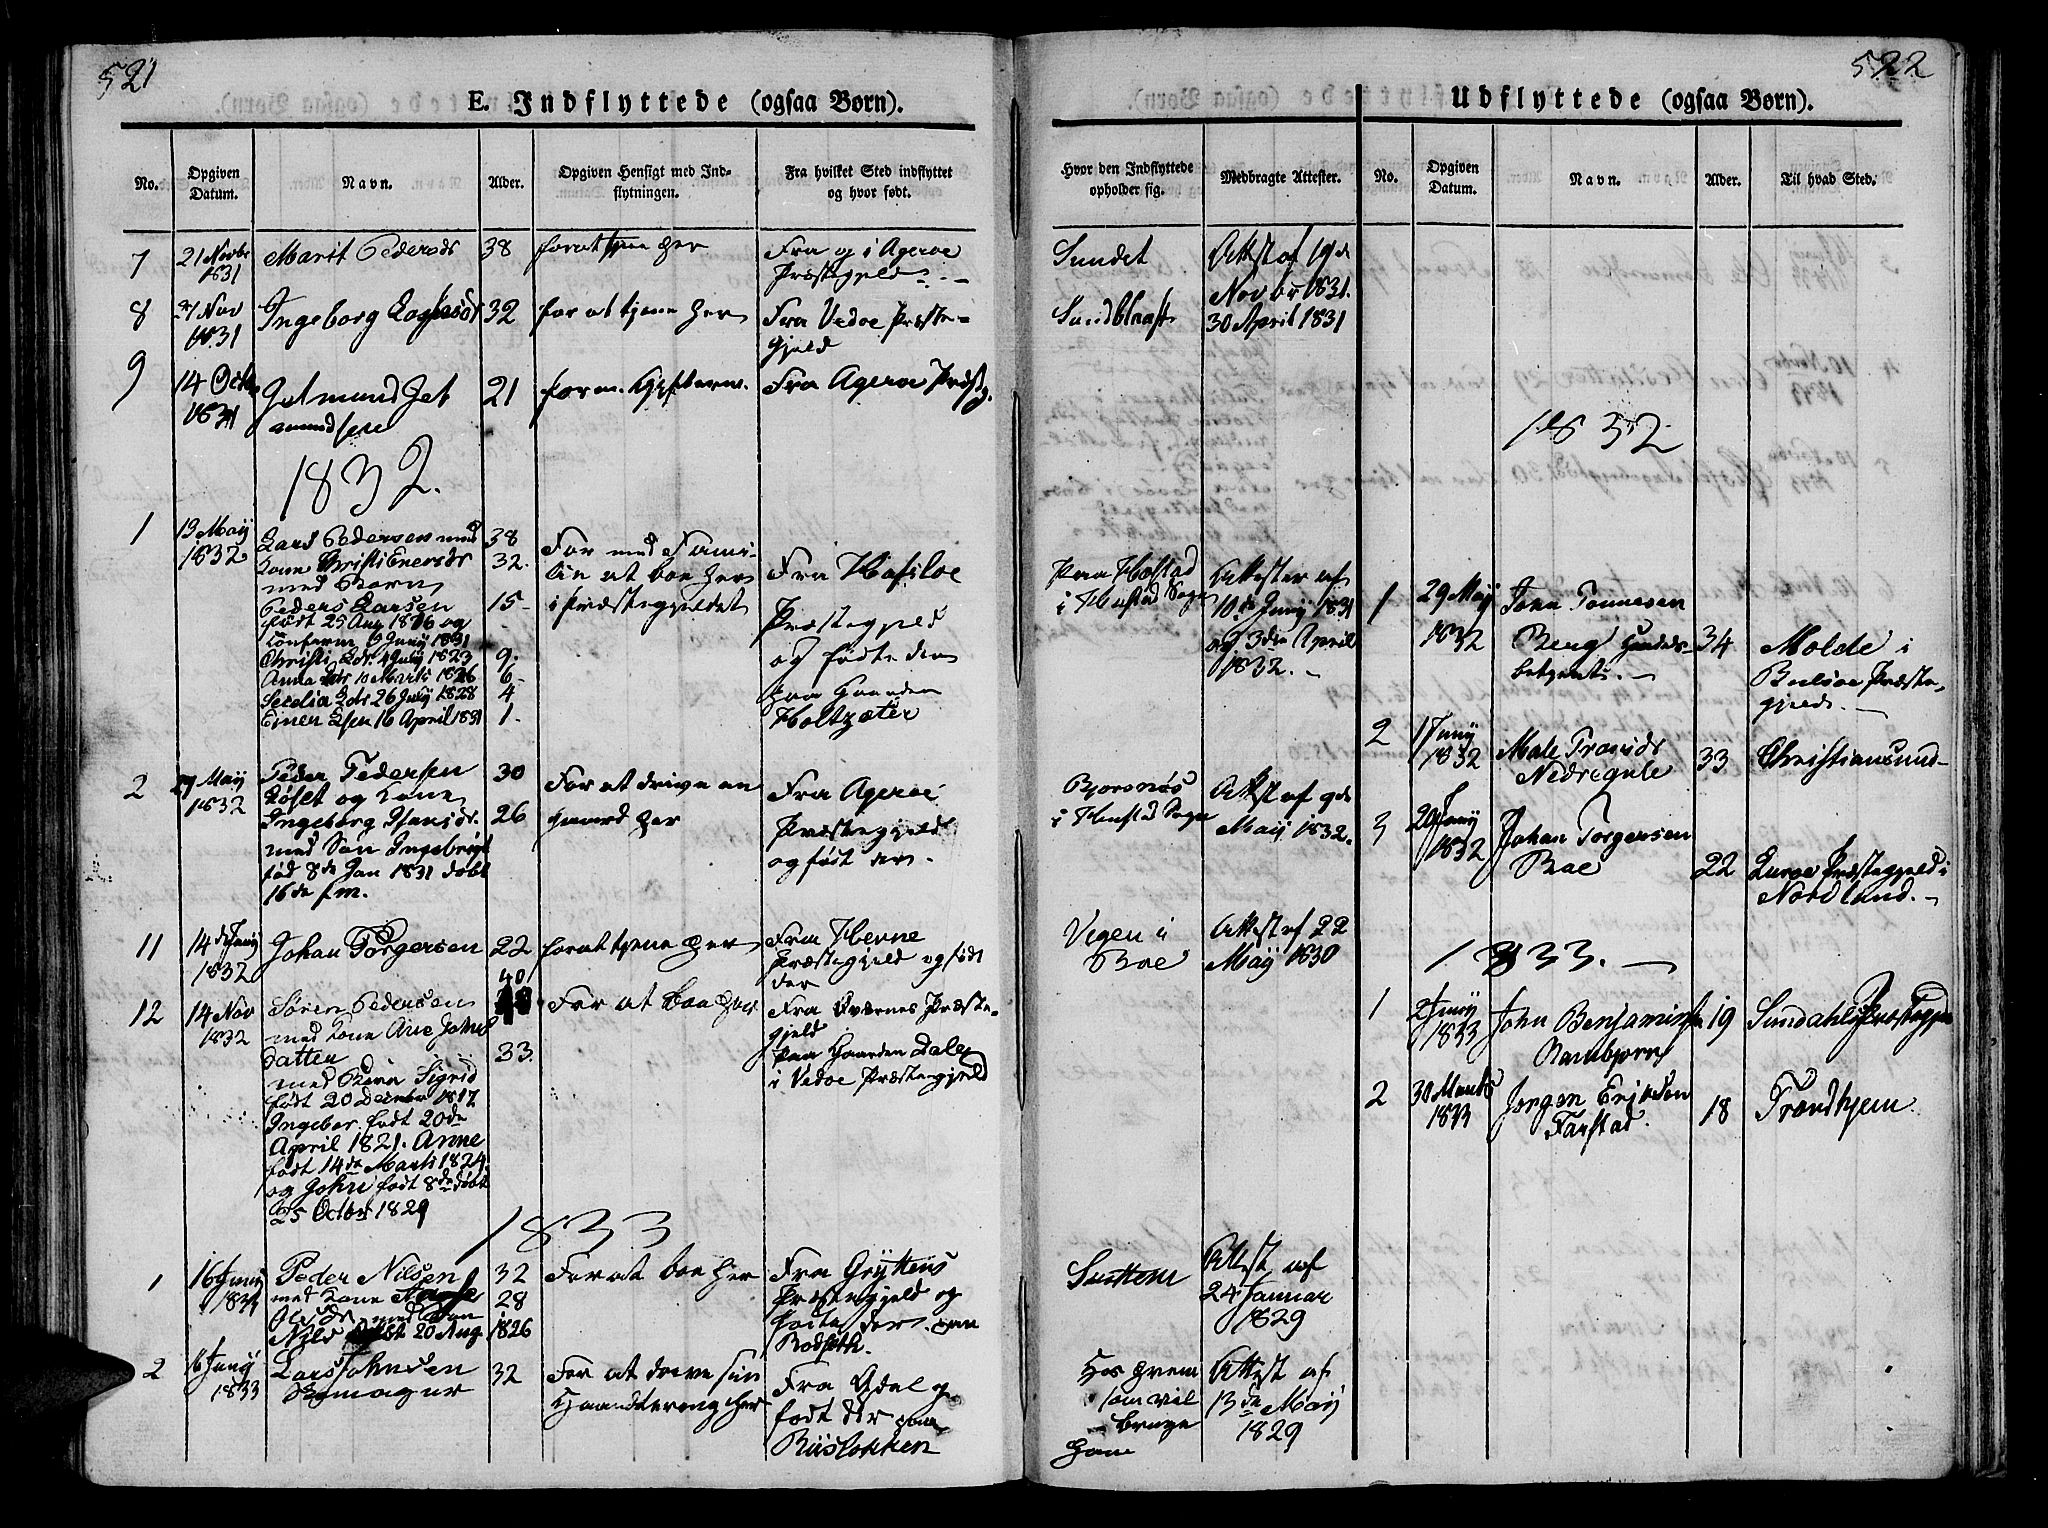 521
E. Indflyttede (ogsaa Børn).
No.
Opgiven Datum.
Navn.
Alder.
Opgiven Hensigt med Ind-
flytningen.
Fra hvilket Sted indflyttet
og hvor født.
7
21 Novbr
1831
Marit Pedersdr
38
for at tjene her
Fra og i Agerøe
Præstegjeld
8
Nov
1831
Ingeborg
32
for at tjene her
Fra Vedøe Præste-
gjeld
9
14 Octbr
1831
Jetmund Jet
mundsen
21
Fra Agerøe Præsteg.
1832.
1
13 Maij
1832
Lars Pedersen med
Kone Christi Enersdr
med Børn
Peders Larsen
født 25 Aug 1816 og
Confirm 9 Junij 1831
Christi Ldr. 4 Julij 1823
Anna Ldr 10 Marts 1826
Secelia Ldr 26 Julij 1828
Einer Lsen 16 April 1831
38
32.
15-
9-
6-
4
1.
For med Fami-
lie at boe her
i Præstegjeldet
Præstegjeld
og fødte der
paa Gaarden
Holtzæter
2
27 Maij
1832
Peder Pedersen
Løset og Kone
Ingeborg Hansdr.
med Søn Ingebrigt
fød 8de Jan 1831 døbt
16de f.m.
30
26
For at drive en
gaard her
Fra Agerøe
Præstegjeld
og født der.
11
14de Junij
1832
Johan Torgersen
22
for at tjene her
Fra Hevne
Præstegjeld og født
der
12
14 Nov
1832
Søren Pedersen
med Kone Ane Johns
datter
med Børn Sigrid
født 20 Decmbr 1817
Ingebor. født 20de
April 1821. Anne
født 14de Marts 1824.
og John født 8de døbt
25 Octbr 1829
40
33.
For at boe her
Fra Qværnes Præste-
gjeld
paa Gaarden Dale
i Vedøe Præstegjeld
1833
1
16 Junij
1833
Peder Nilsen
med Kone
Olesdr. med Søn
Nils født 20 Aug 1826
32
28
For at boe her
Fra Gryttens
Præstegjeld og
fødte der. paa
Rødseth.
2
6 Junij
1833
Lars Johnsen
32
For at drive sin
Haandtering her
Fra
født der paa
Riisløkken
522
Udflyttede (ogsaa Børn).
Hvor den Indflyttede
opholder sig.
Medbragte Attester.
No.
Opgiven
Datum.
Navn.
Alder.
Til hvad Sted.
Sundet
Attest af 19de
Novbr 1831.
30 April 1831
Paa Hostad
i Hustad Sogn
Attester af
10de Junij 1831
og 3die April
1832.
Bjørnøs
i Hustad Sogn
Attest af 9de
Maij 1832.
Vegen i
Boe
Attest af 22
Maij 1830
Attest af
24 Januar
1829
Hos hvem
som vil
bruge
ham
Attest af
13de Maij
1829
1832
1
29 Maij
1832
Tønnesen
Berg
betjent.
34
Molde i
Bolsøe Præste-
gjeld.
2
1 Junij
1832
33
Christiansund
3
20 Junij
1832
Johan Torgersen
Boe
22
Lurøe Præstegjeld i
Nordland.
1833.
1
2 Junij
1833
John Benjaminsen
19
Sundahls Præstegjeld
2
30 Marts
1833
Jørgen Eriksen
Farstad.
18
Trondhjem